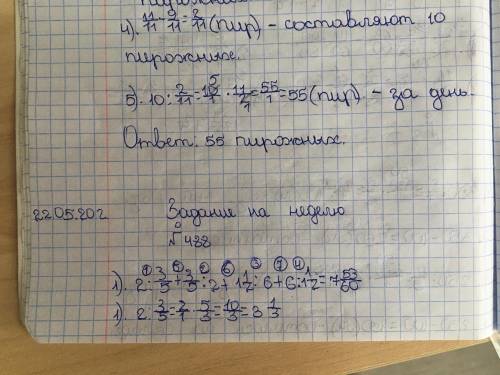 4). 11/11 - 9/11 = 2/11 (пир) - составляют 10
пирожных.
5). 10 : 2/11 = 10/1 · 11/2 = 55/1 = 55 (пир) - за день.
Ответ: 55 пирожных.
22.05.202 Задание на неделю
№ 488
1). 2 : 3/5 + 3/5 : 2 + 1 1/2 : 6 + 6 : 1 1/2 = 7 53/60
1). 2 : 3/5 = 2/1 · 5/3 = 10/3 = 3 1/3